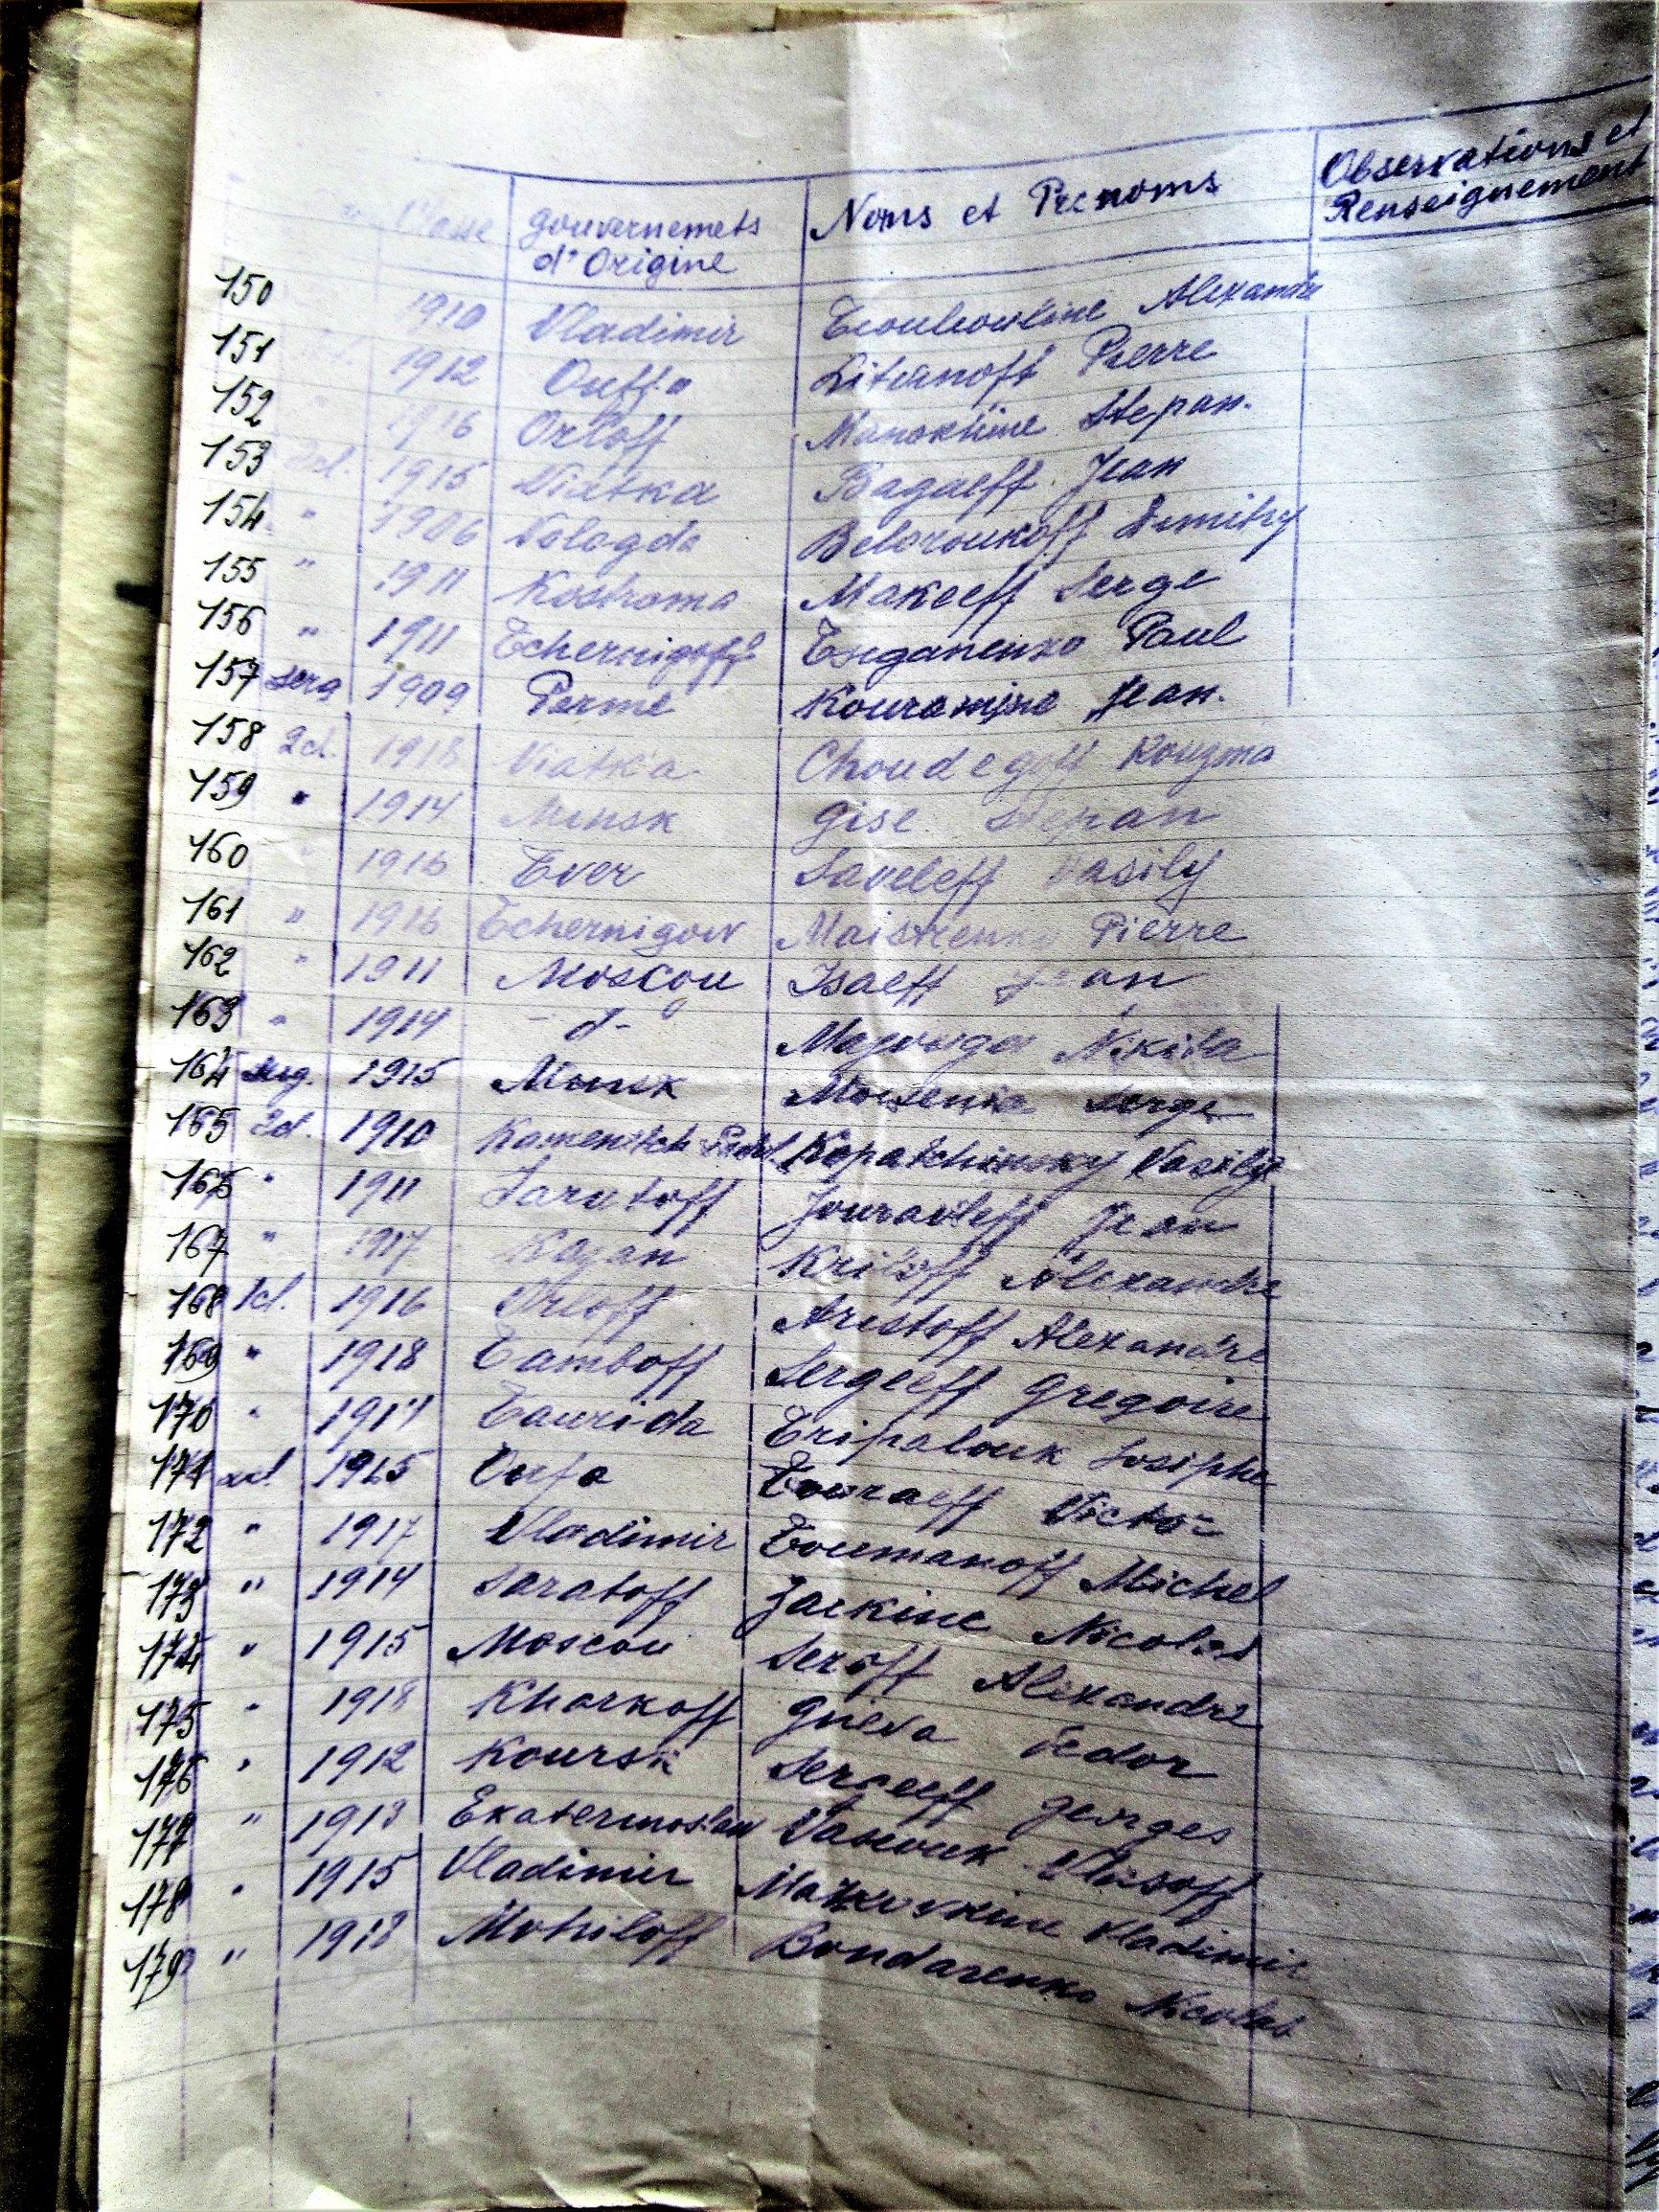 Classe gouvernemets d'Origine Noms et Prenoms Observations et Renseignement
150 1910 Vladimir Alexandre
151 1912 Ouffa Litvanoff Pierre
152 1916 Orloff Manokhine Stepan.
153 2cl. 1915 Viatka Bagaeff Jean
154 " 1906 Vologda Beloroukoff Dimitry
155 " 1911 Kostroma Makeeff Serge
156 " 1911 Tchernigoff Tsiganenko Paul
157 serg 1909 Perme Jean.
158 2cl. 1918 Viatka Choudegoff Kouzma
159 " 1914 Minsk Gise Stepan
160 " 1916 Tver Saveleff Vasily
161 " 1916 Tchernigow Maistrenko Pierre
162 " 1911 Moscou Isaeff Jean
163 " 1914 - d - Nikita
164 serg. 1915 Minsk Serge
165 2cl. 1910 Kopatchinsky Vasily
166 " 1911 Saratoff Jouravleff Jean
167 " 1917 Kazan Kriloff Alexandre
168 1cl. 1916 Orloff Aristoff Alexandre
169 " 1918 Tamboff Sergeeff Gregoire
170 " 1917 Taurida Tripalouk Josiphe
171 2cl. 1915 Oufa Touraeff Victor
172 " 1917 Vladimir Toumanoff Michel
173 " 1914 Saratoff Jarkine Nicolas
174 " 1915 Moscou Seroff Alexandre
175 " 1918 Kharkoff Fedor
176 " 1912 Koursk Sergeeff Georges
177 " 1913 Ekaterinoslaw
178 " 1915 Vladimir Vladimir
179 " 1918 Mohiloff Bondarenko Nicolas